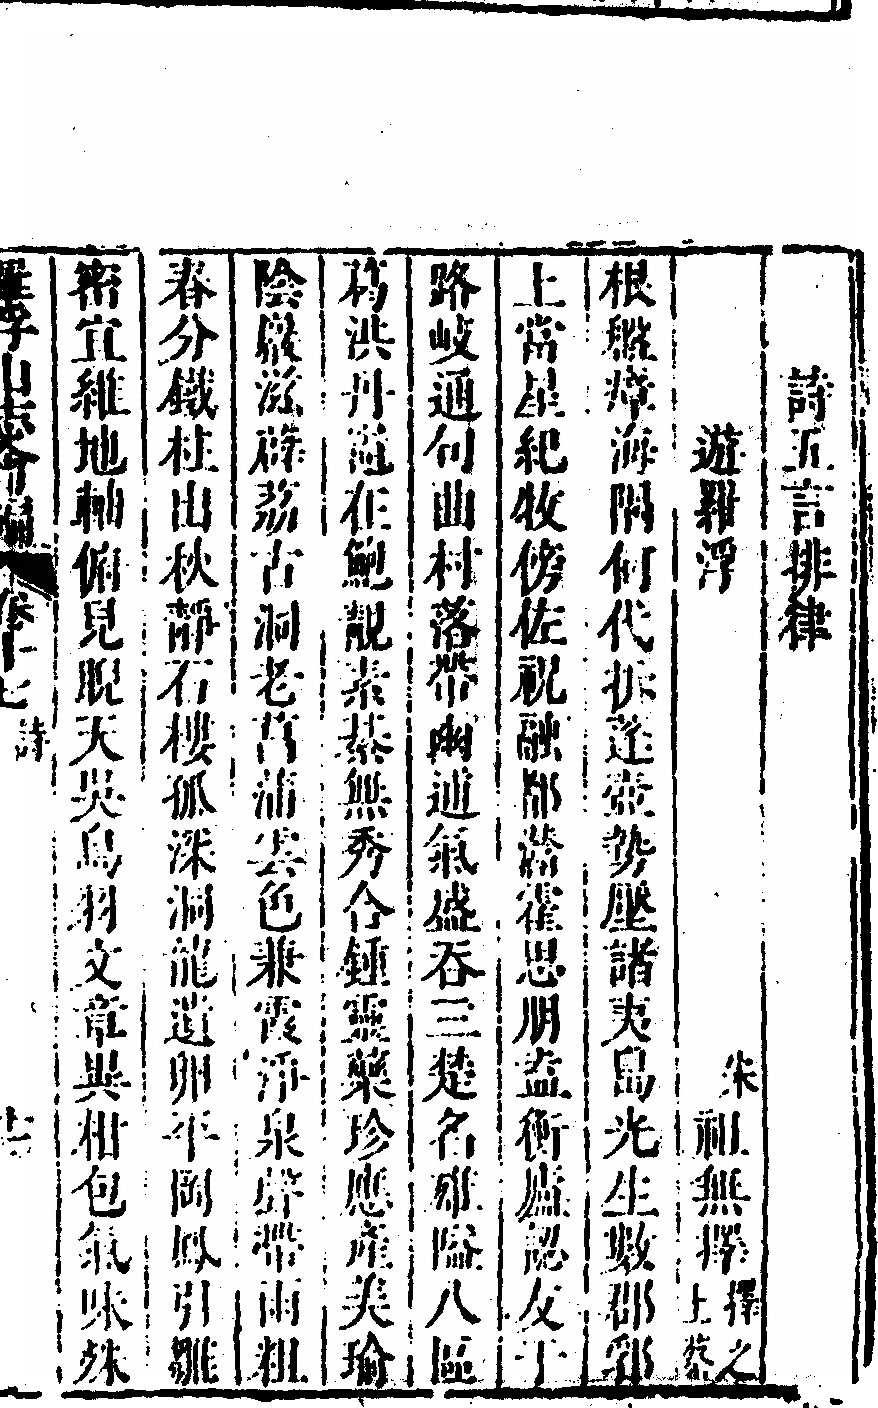 詩五言排律
遊羅浮
宋祖無擇擇之上蔡
根盤瘴海隅何代拆蓬壺勢壓諸夷島光生數郡郛
上當星紀牧傍佐祝融都潛霍思朋益衡廬認友于
路岐通句曲村落帶幽迪氣盛吞三楚名雄隘八區
葛洪丹遁在鮑靚素棊無秀合鍾靈藥珍應產美瑜
陰巖滋薜荔古洞老菖蒲雲色兼霞淨泉聲帶雨粗
春分鐵柱出秋靜石樓孤深洞龍遺卵平岡鳳引雛
密宜維地軸俯見睨天吳鳥羽文章與柑包氣味殊
羅浮山志會編 卷十七 詩